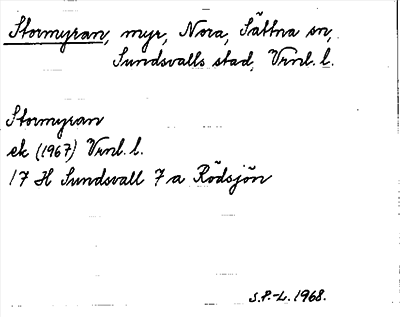 Stormyran, myr, Nora, Sättna sn,
Sundsvalls stad, Vrnl. l.
Stormyran
ek (1967) Vrnl. l.
17 H Sundsvall 7 a Rödsjön
S.P.-L. 1968.